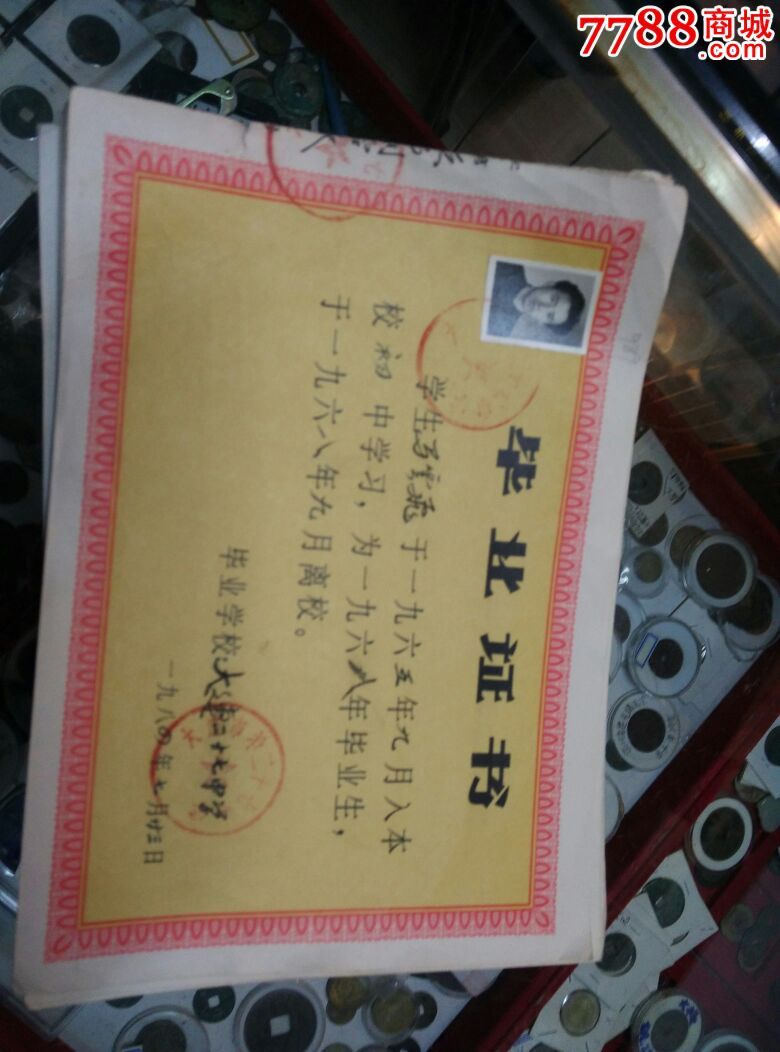 7788商城
.com
毕业证书
学生 于一九六五年九月入本
校初中学习，为一九六八年毕业生，
于一九六八年九月离校。
毕业学校:大连二十七中学
一九八〇年七月廿三日